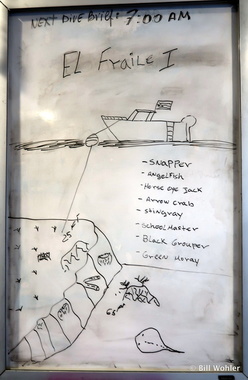 NEXT Dive Brief: 7:00 AM
EL Fraile I
- SNAPPER
- Angelfish
- Horse eye Jack
- Arrow Crab
- Stingray
- School Master
- Black Grouper
- Green Moray
© Bill Wohler